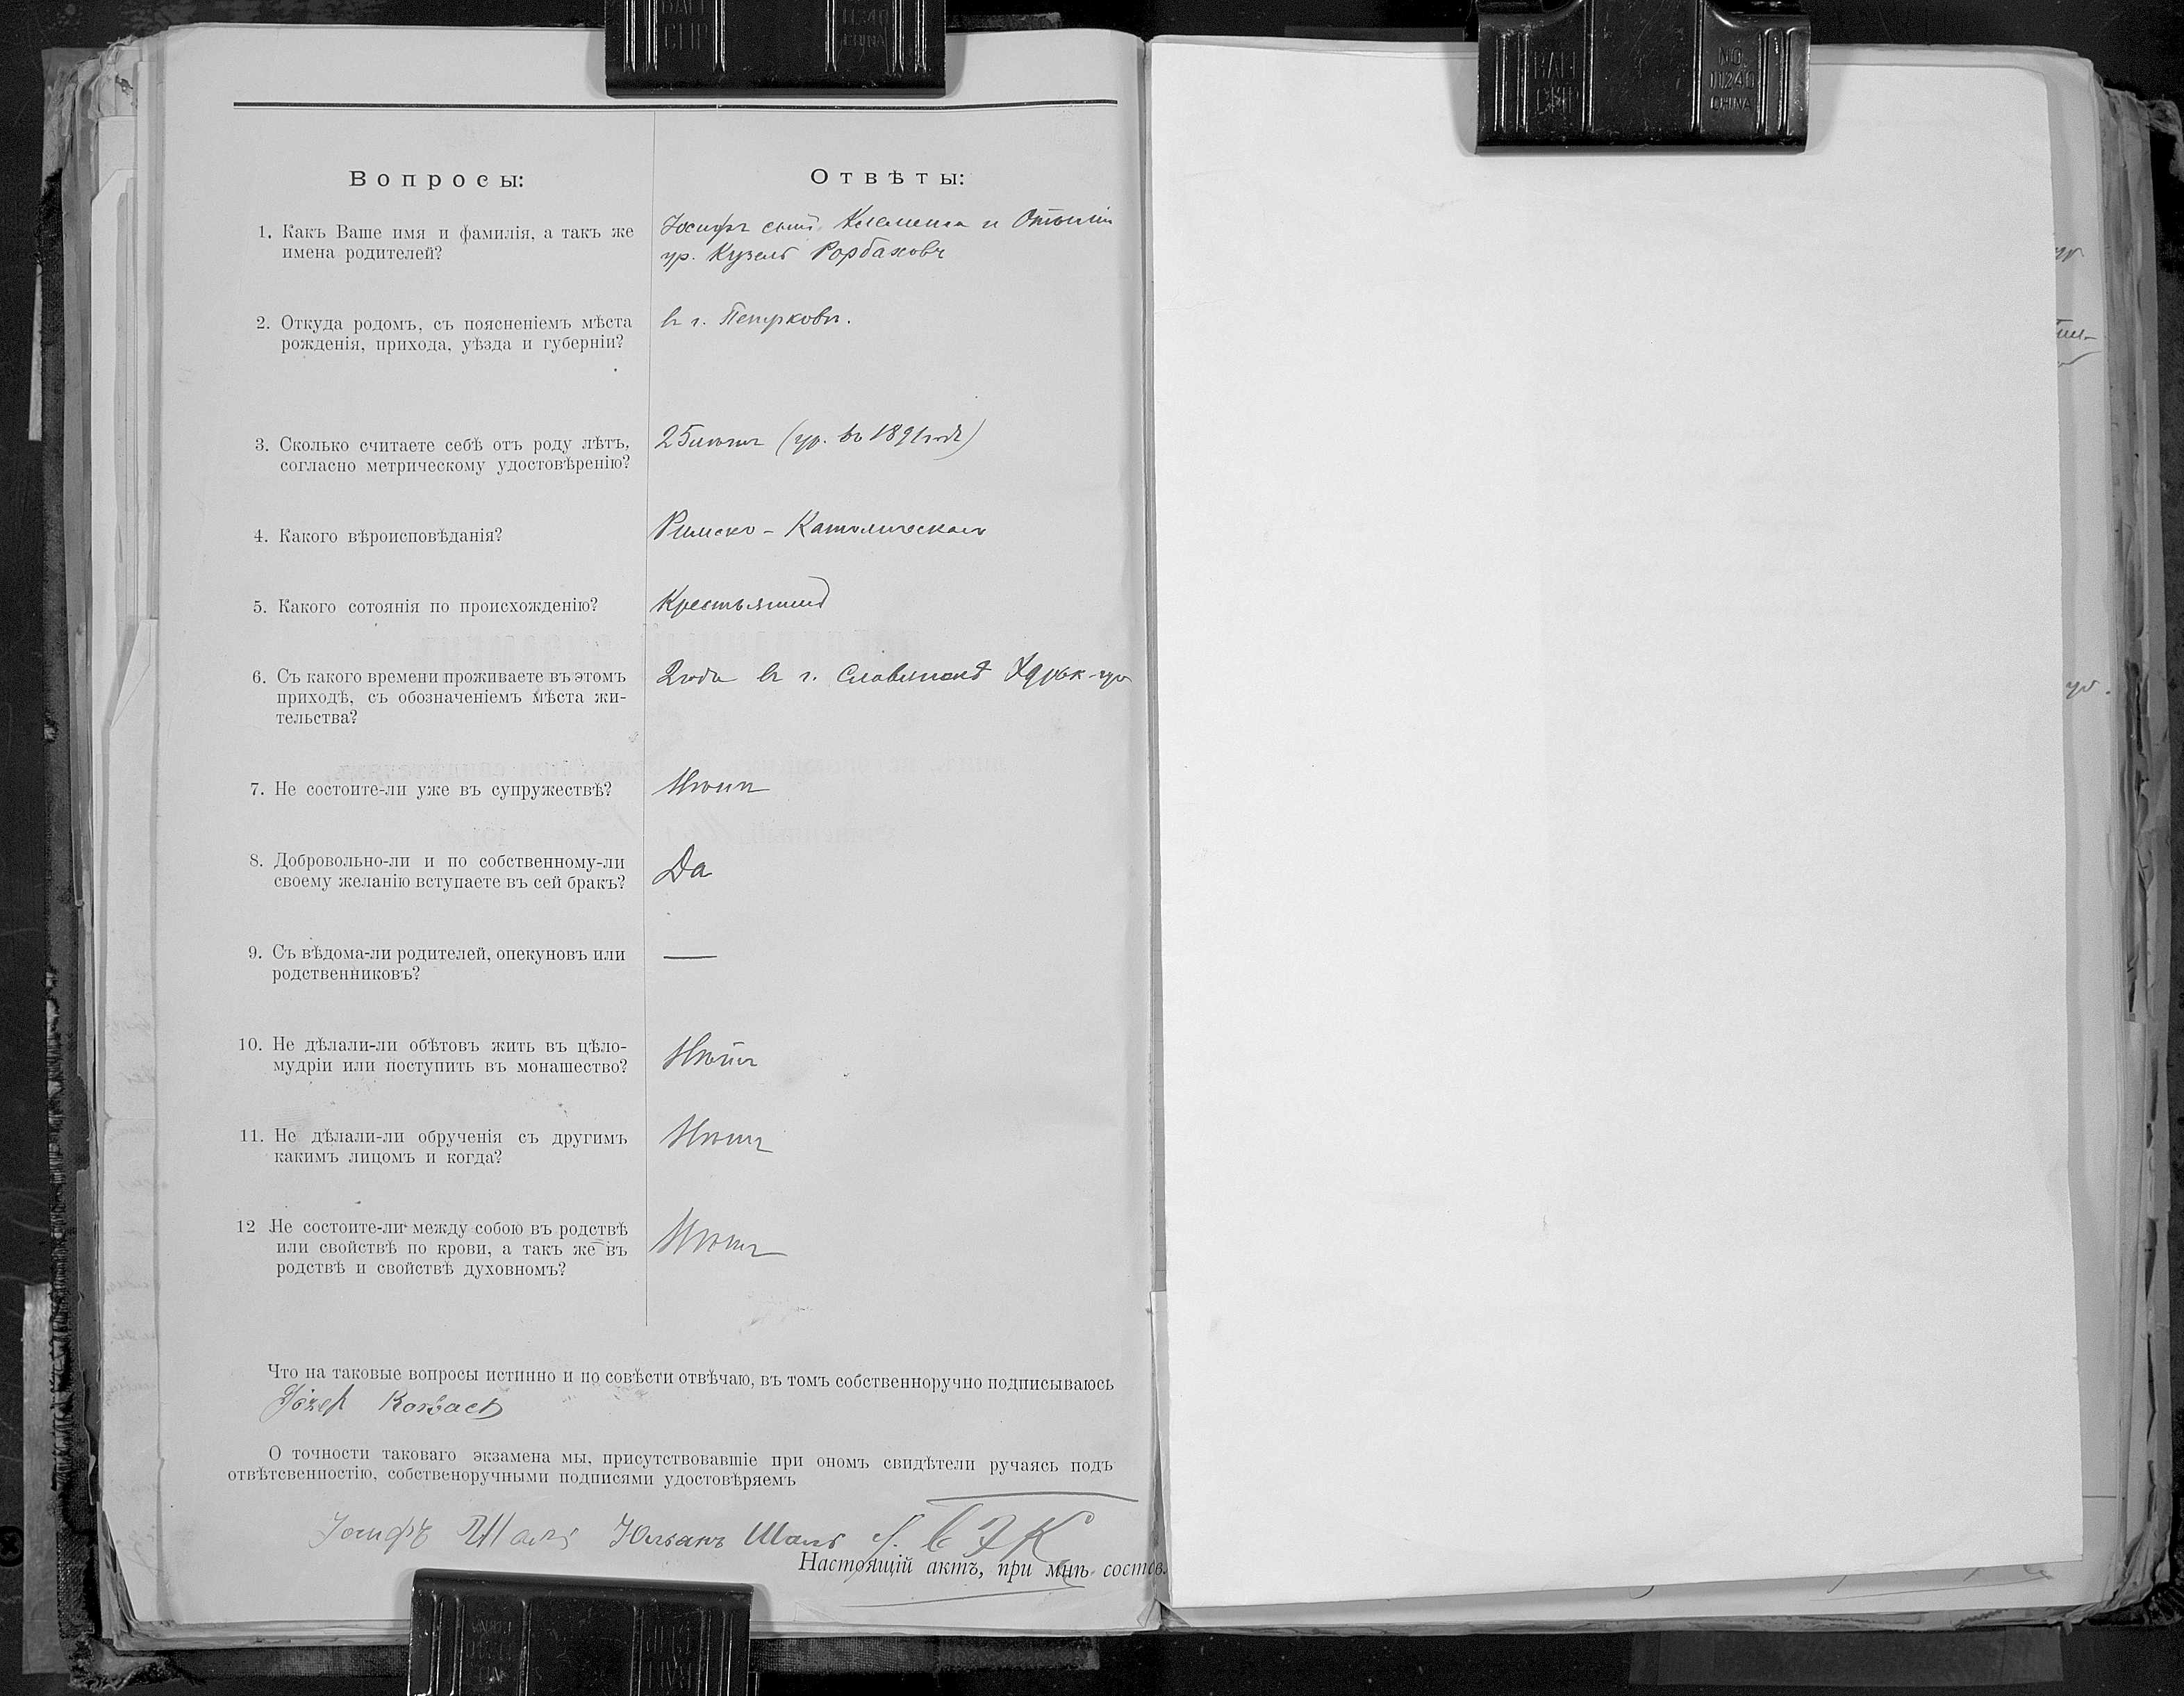 BALL CLIP NO. 11240 CHINA
Вопросы:
Отвѣты:
1. Какъ Ваше имя и фамилія, а такъ же
имена родителей?
Іосифъ сынъ Клемента и Отыліи
ур. Кузель Рорбаховъ
2. Откуда родомъ, съ поясненіемъ мѣста
рожденія, прихода, уѣзда и губерніи?
въ г. Петрковѣ.
3. Сколько считаете себѣ отъ роду лѣтъ,
согласно метрическому удостовѣренію?
25 лѣтъ (ур. въ 1891 годѣ)
4. Какого вѣроисповѣданія?
Римско-Католическаго
5. Какого сотоянія по происхожденію?
Крестьянинъ
6. Съ какого времени проживаете въ этомъ
приходѣ, съ обозначеніемъ мѣста жи-
тельства?
2 года въ г. Славянскѣ Харьк-
7. Не состоите-ли уже въ супружествѣ?
Нѣтъ
8. Добровольно-ли и по собственному-ли
своему желанію вступаете въ сей бракъ?
Да
9. Съ вѣдома-ли родителей, опекуновъ или
родственниковъ?
—
10. Не дѣлали-ли обѣтовъ жить въ цѣло-
мудріи или поступить въ монашество?
Нѣтъ
11. Не дѣлали-ли обрученія съ другимъ
какимъ лицомъ и когда?
Нѣтъ
12 Не состоите-ли между собою въ родствѣ
или свойствѣ по крови, а такъ же въ
родствѣ и свойствѣ духовномъ?
Нѣтъ
Что на таковые вопросы истинно и по совѣсти отвѣчаю, въ томъ собственноручно подписываюсь
Józef Rorbach
О точности таковаго экзамена мы, присутствовавшіе при ономъ свидѣтели ручаясь подъ
отвѣтсвенностію, собственоручными подписями удостовѣряемъ
Іосифъ Шаль Юльянъ Шаль
Настоящій актъ, при мнѣ состав.
BALL CLIP NO. 11240 CHINA